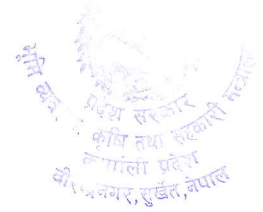 भूमि व्यव
प्रदेश सरकार
कृषि तथा सहकारी मन्त्रालय
कर्णाली प्रदेश
वीरेन्द्रनगर, सुर्खेत, नेपाल